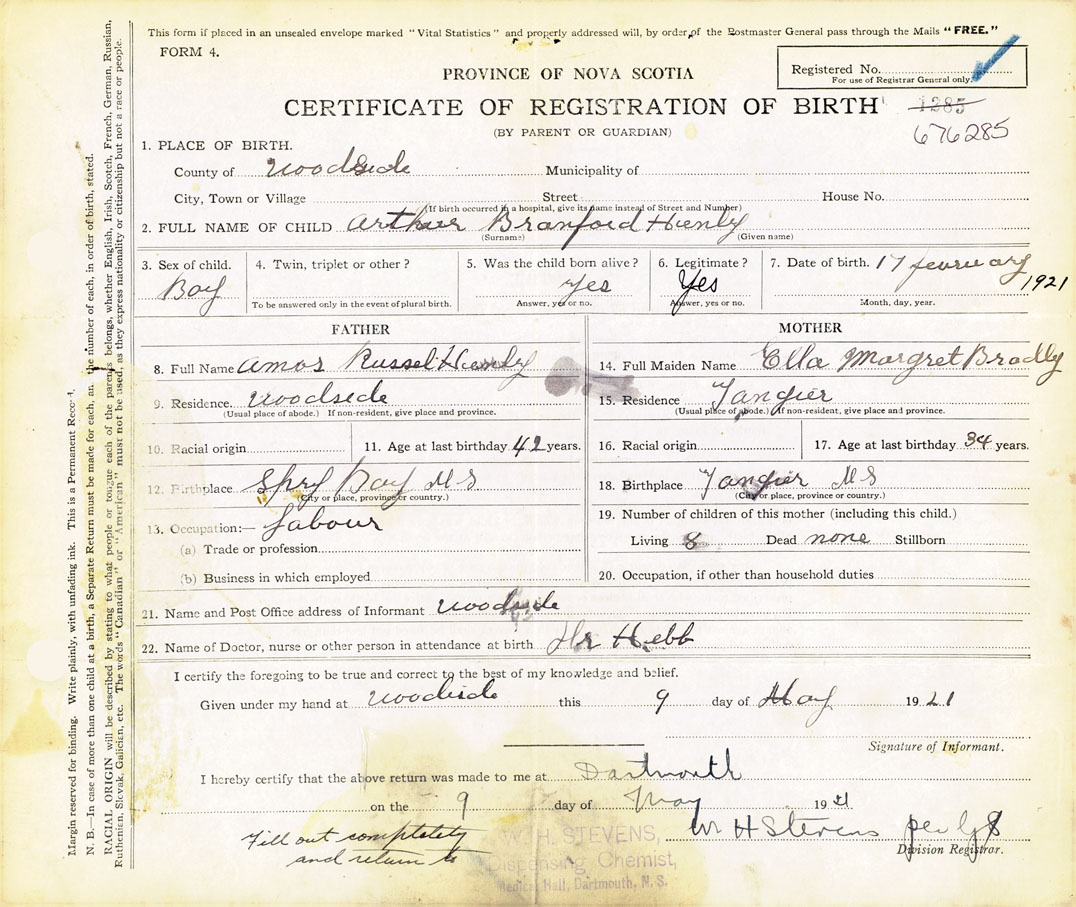 This form if placed in an unsealed envelope marked "Vital Statistics" and properly addressed will, by order of the Postmaster General pass through the Mails "FREE."
FORM 4.
Registered No.
For use of Registrar General only.
PROVINCE OF NOVA SCOTIA
CERTIFICATE OF REGISTRATION OF BIRTH
1285
(BY PARENT OR GUARDIAN)
676285
1. PLACE OF BIRTH.
County of Woodside Municipality of
City, Town or Village Street House No.
(If birth occurred in a hospital, give its name instead of Street and Number)
2. FULL NAME OF CHILD Arthur Branford Henly
(Surname) (Given name)
3. Sex of child. 4. Twin, triplet or other? 5. Was the child born alive? 6. Legitimate? 7. Date of birth. 17 feuruary
Boy Yes Yes 1921
To be answered only in the event of plural birth. Answer, yes or no. Answer, yes or no. Month, day, year.
FATHER
8. Full Name Amos Russel Henly
9. Residence Woodside
(Usual place of abode.) If non-resident, give place and province.
10. Racial origin 11. Age at last birthday 42 years.
12. Birthplace Spry Bay N S
(City or place, province or country.)
13. Occupation:— Labour
(a) Trade or profession
(b) Business in which employed
MOTHER
14. Full Maiden Name Ella Margret Bradly
15. Residence Tangier
(Usual place of abode.) If non-resident, give place and province.
16. Racial origin 17. Age at last birthday 34 years.
18. Birthplace Tangier N S
(City or place, province or country.)
19. Number of children of this mother (including this child.)
Living 8 Dead none Stillborn
20. Occupation, if other than household duties
21. Name and Post Office address of Informant Woodside
22. Name of Doctor, nurse or other person in attendance at birth Dr Hebb
I certify the foregoing to be true and correct to the best of my knowledge and belief.
Given under my hand at Woodside this 9 day of May 1921
Signature of Informant.
I hereby certify that the above return was made to me at Dartmouth
on the 9 day of May 1921
Wm H Stevens per
Division Registrar.
Fill out completety
and return to
H. STEVENS,
Dispensing Chemist,
Medical Hall, Dartmouth, N. S.
Margin reserved for binding. Write plainly, with unfading ink. This is a Permanent Record.
N. B.—In case of more than one child at a birth, a Separate Return must be made for each, and the number of each, in order of birth, stated.
RACIAL ORIGIN will be described by stating to what people or tongue each of the parents belongs, whether English, Irish, Scotch, French, German, Russian,
Ruthenian, Slovak, Galician, etc. The words "Canadian" or "American" must not be used, as they express nationality or citizenship but not a race or people.